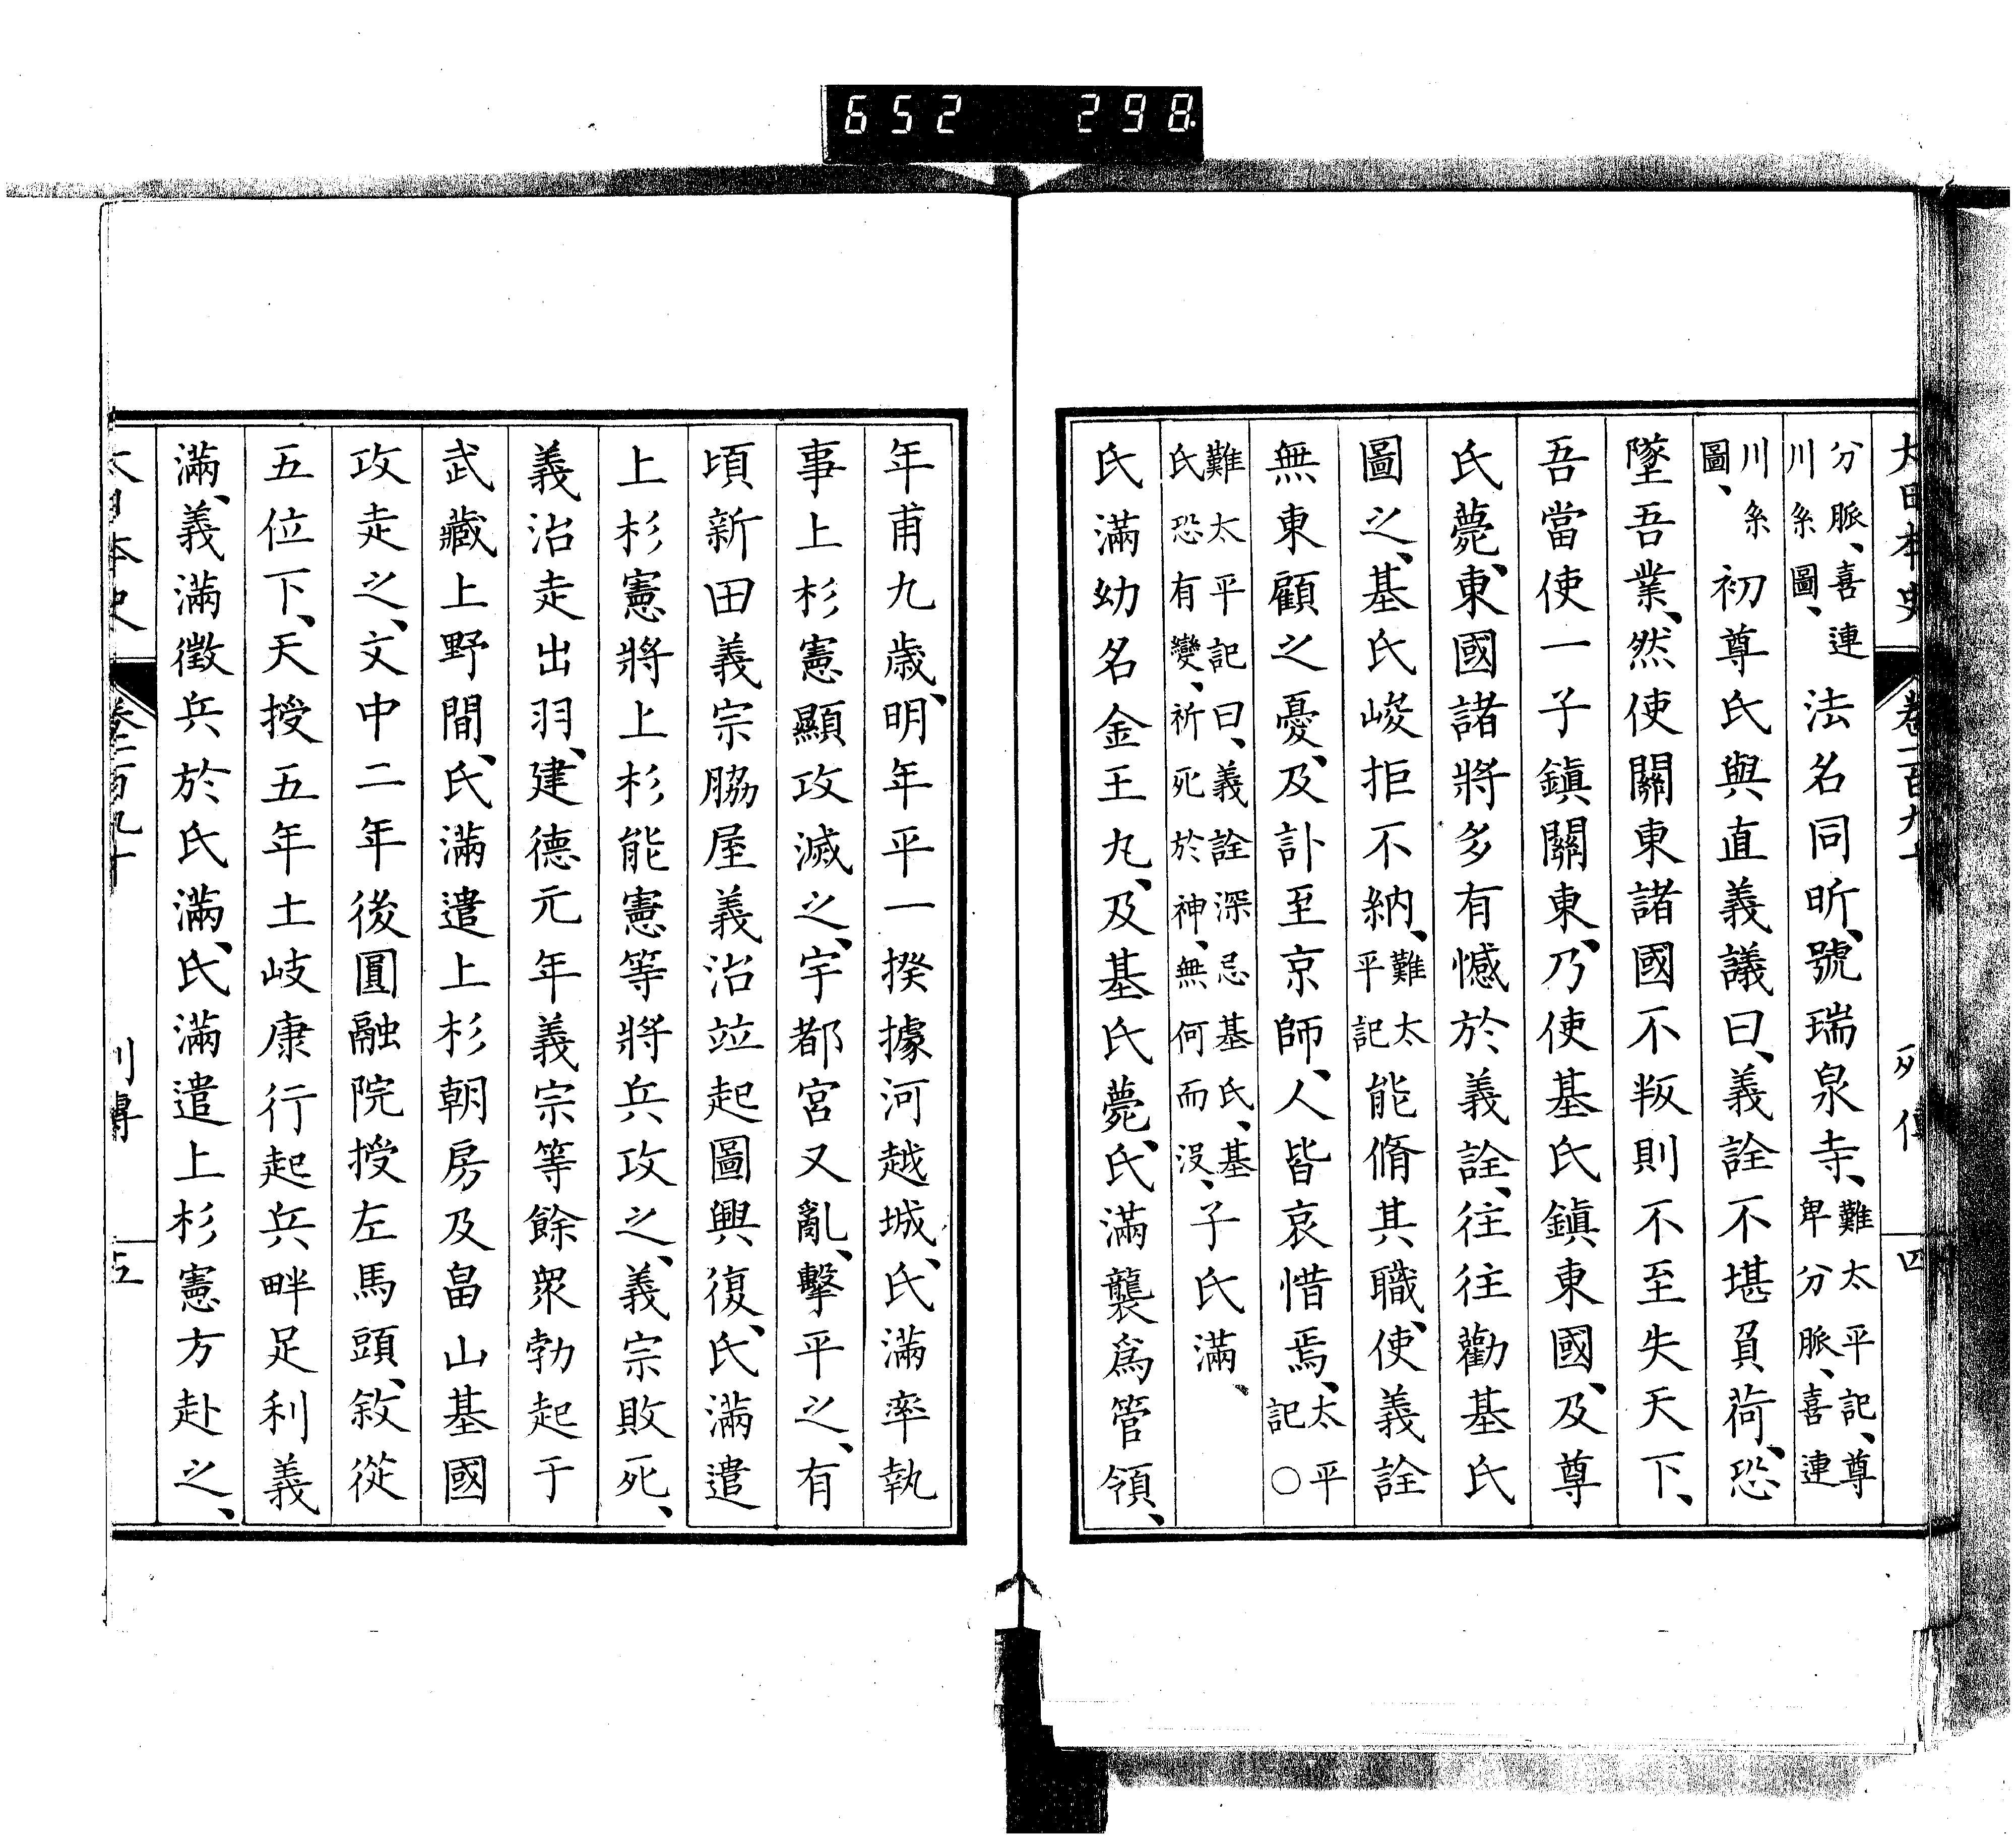 652 298
大日本史 卷二百九十 列傳 四
分脈、喜連川系圖、法名同昕、號瑞泉寺、難太平記、尊卑分脈、喜連
川系圖、初尊氏與直義議曰、義詮不堪負荷、恐
墜吾業、然使關東諸國不叛則不至失天下、
吾當使一子鎭關東、乃使基氏鎭東國、及尊
氏薨、東國諸將多有憾於義詮、往往勸基氏
圖之、基氏峻拒不納、難太平記能脩其職、使義詮
無東顧之憂、及訃至京師、人皆哀惜焉、太平記○
難太平記曰、義詮深忌基氏、基氏恐有變、祈死於神、無何而沒、子氏滿、
氏滿幼名金王丸、及基氏薨、氏滿襲爲管領、
年甫九歲、明年平一揆據河越城、氏滿率執
事上杉憲顯攻滅之、宇都宮又亂、擊平之、有
頃新田義宗脇屋義治竝起圖興復、氏滿遣
上杉憲將上杉能憲等將兵攻之、義宗敗死、
義治走出羽、建德元年義宗等餘衆勃起于
武藏上野間、氏滿遣上杉朝房及畠山基國
攻走之、文中二年後圓融院授左馬頭、敘從
五位下、天授五年土岐康行起兵畔足利義
滿、義滿徵兵於氏滿、氏滿遣上杉憲方赴之、
大日本史 卷二百九十 列傳 五